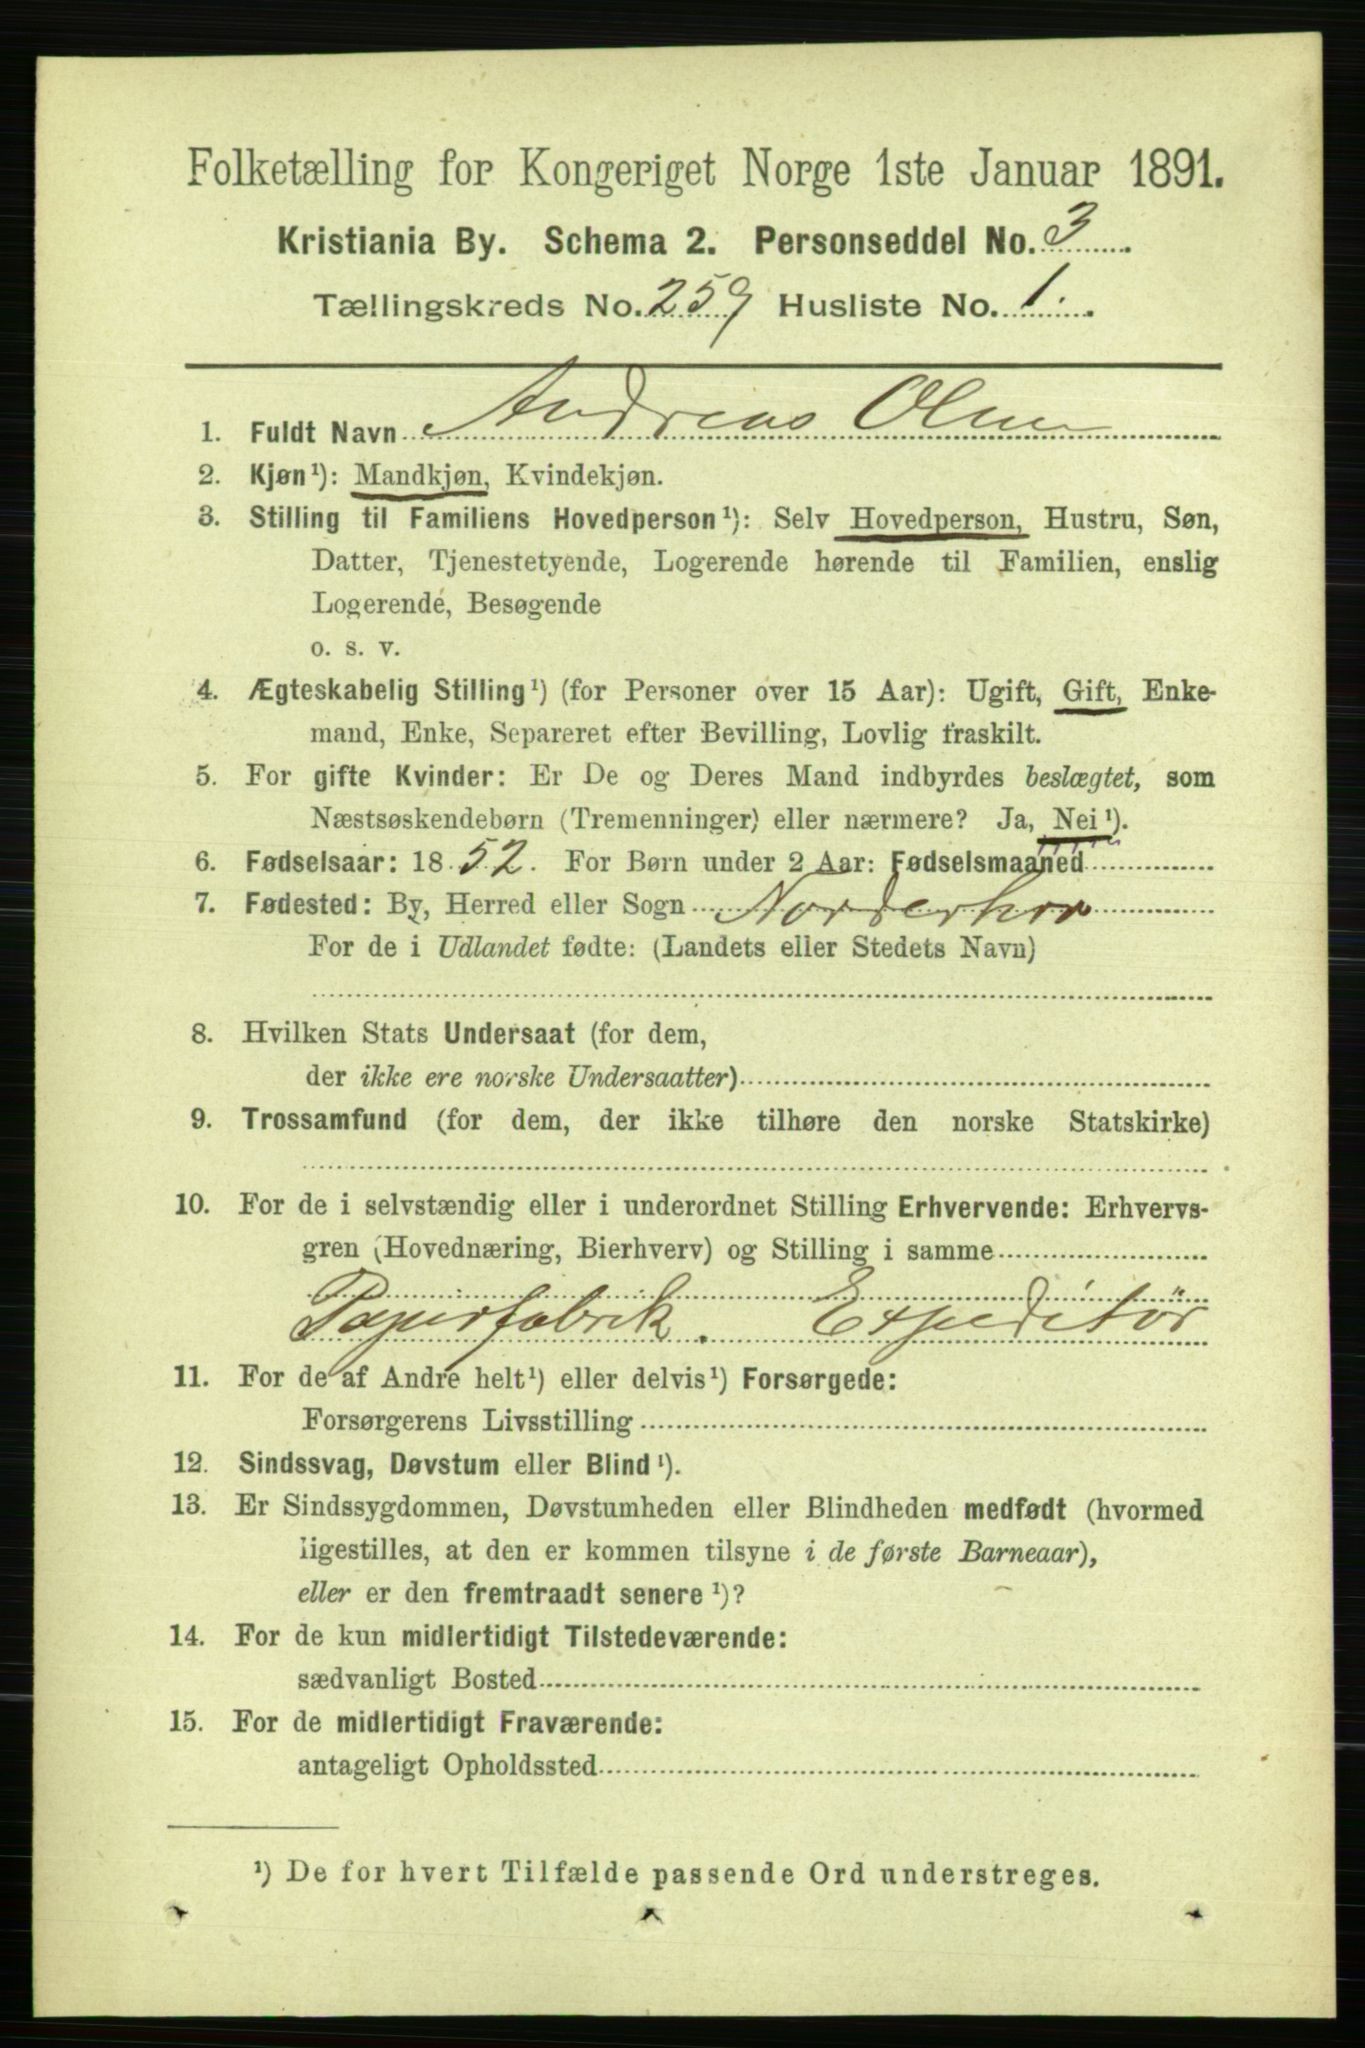 Folketælling for Kongeriget Norge 1ste Januar 1891.
Kristiania By. Schema 2. Personseddel No. 3
Tællingskreds No. 259 Husliste No. 1.
1. Fuldt Navn Andreas Olsen
2. Kjøn¹): Mandkjøn, Kvindekjøn.
3. Stilling til Familiens Hovedperson¹): Selv Hovedperson, Hustru, Søn,
Datter, Tjenestetyende, Logerende hørende til Familien, enslig
Logerende, Besøgende
o. s. v.
4. Ægteskabelig Stilling¹) (for Personer over 15 Aar): Ugift, Gift, Enke-
mand, Enke, Separeret efter Bevilling, Lovlig fraskilt.
5. For gifte Kvinder: Er De og Deres Mand indbyrdes beslægtet, som
Næstsøskendebørn (Tremenninger) eller nærmere? Ja, Nei¹).
6. Fødselsaar: 1852. For Børn under 2 Aar: Fødselsmaaned
7. Fødested: By, Herred eller Sogn Norderhov
For de i Udlandet fødte: (Landets eller Stedets Navn)
8. Hvilken Stats Undersaat (for dem,
der ikke ere norske Undersaatter)
9. Trossamfund (for dem, der ikke tilhøre den norske Statskirke)
10. For de i selvstændig eller i underordnet Stilling Erhvervende: Erhvervs-
gren (Hovednæring, Bierhverv) og Stilling i samme
Papirfabrik. Expeditør
11. For de af Andre helt¹) eller delvis¹) Forsørgede:
Forsørgerens Livsstilling
12. Sindssvag, Døvstum eller Blind¹).
13. Er Sindssygdommen, Døvstumheden eller Blindheden medfødt (hvormed
ligestilles, at den er kommen tilsyne i de første Barneaar),
eller er den fremtraadt senere¹)?
14. For de kun midlertidigt Tilstedeværende:
sædvanligt Bosted
15. For de midlertidigt Fraværende:
antageligt Opholdssted
¹) De for hvert Tilfælde passende Ord understreges.